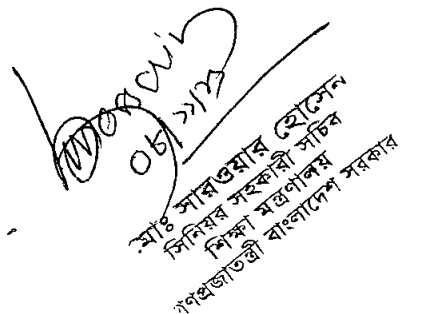 মোঃ সারওয়ার হোসেন
সিনিয়র সহকারী সচিব
শিক্ষা মন্ত্রণালয়
গণপ্রজাতন্ত্রী বাংলাদেশ সরকার